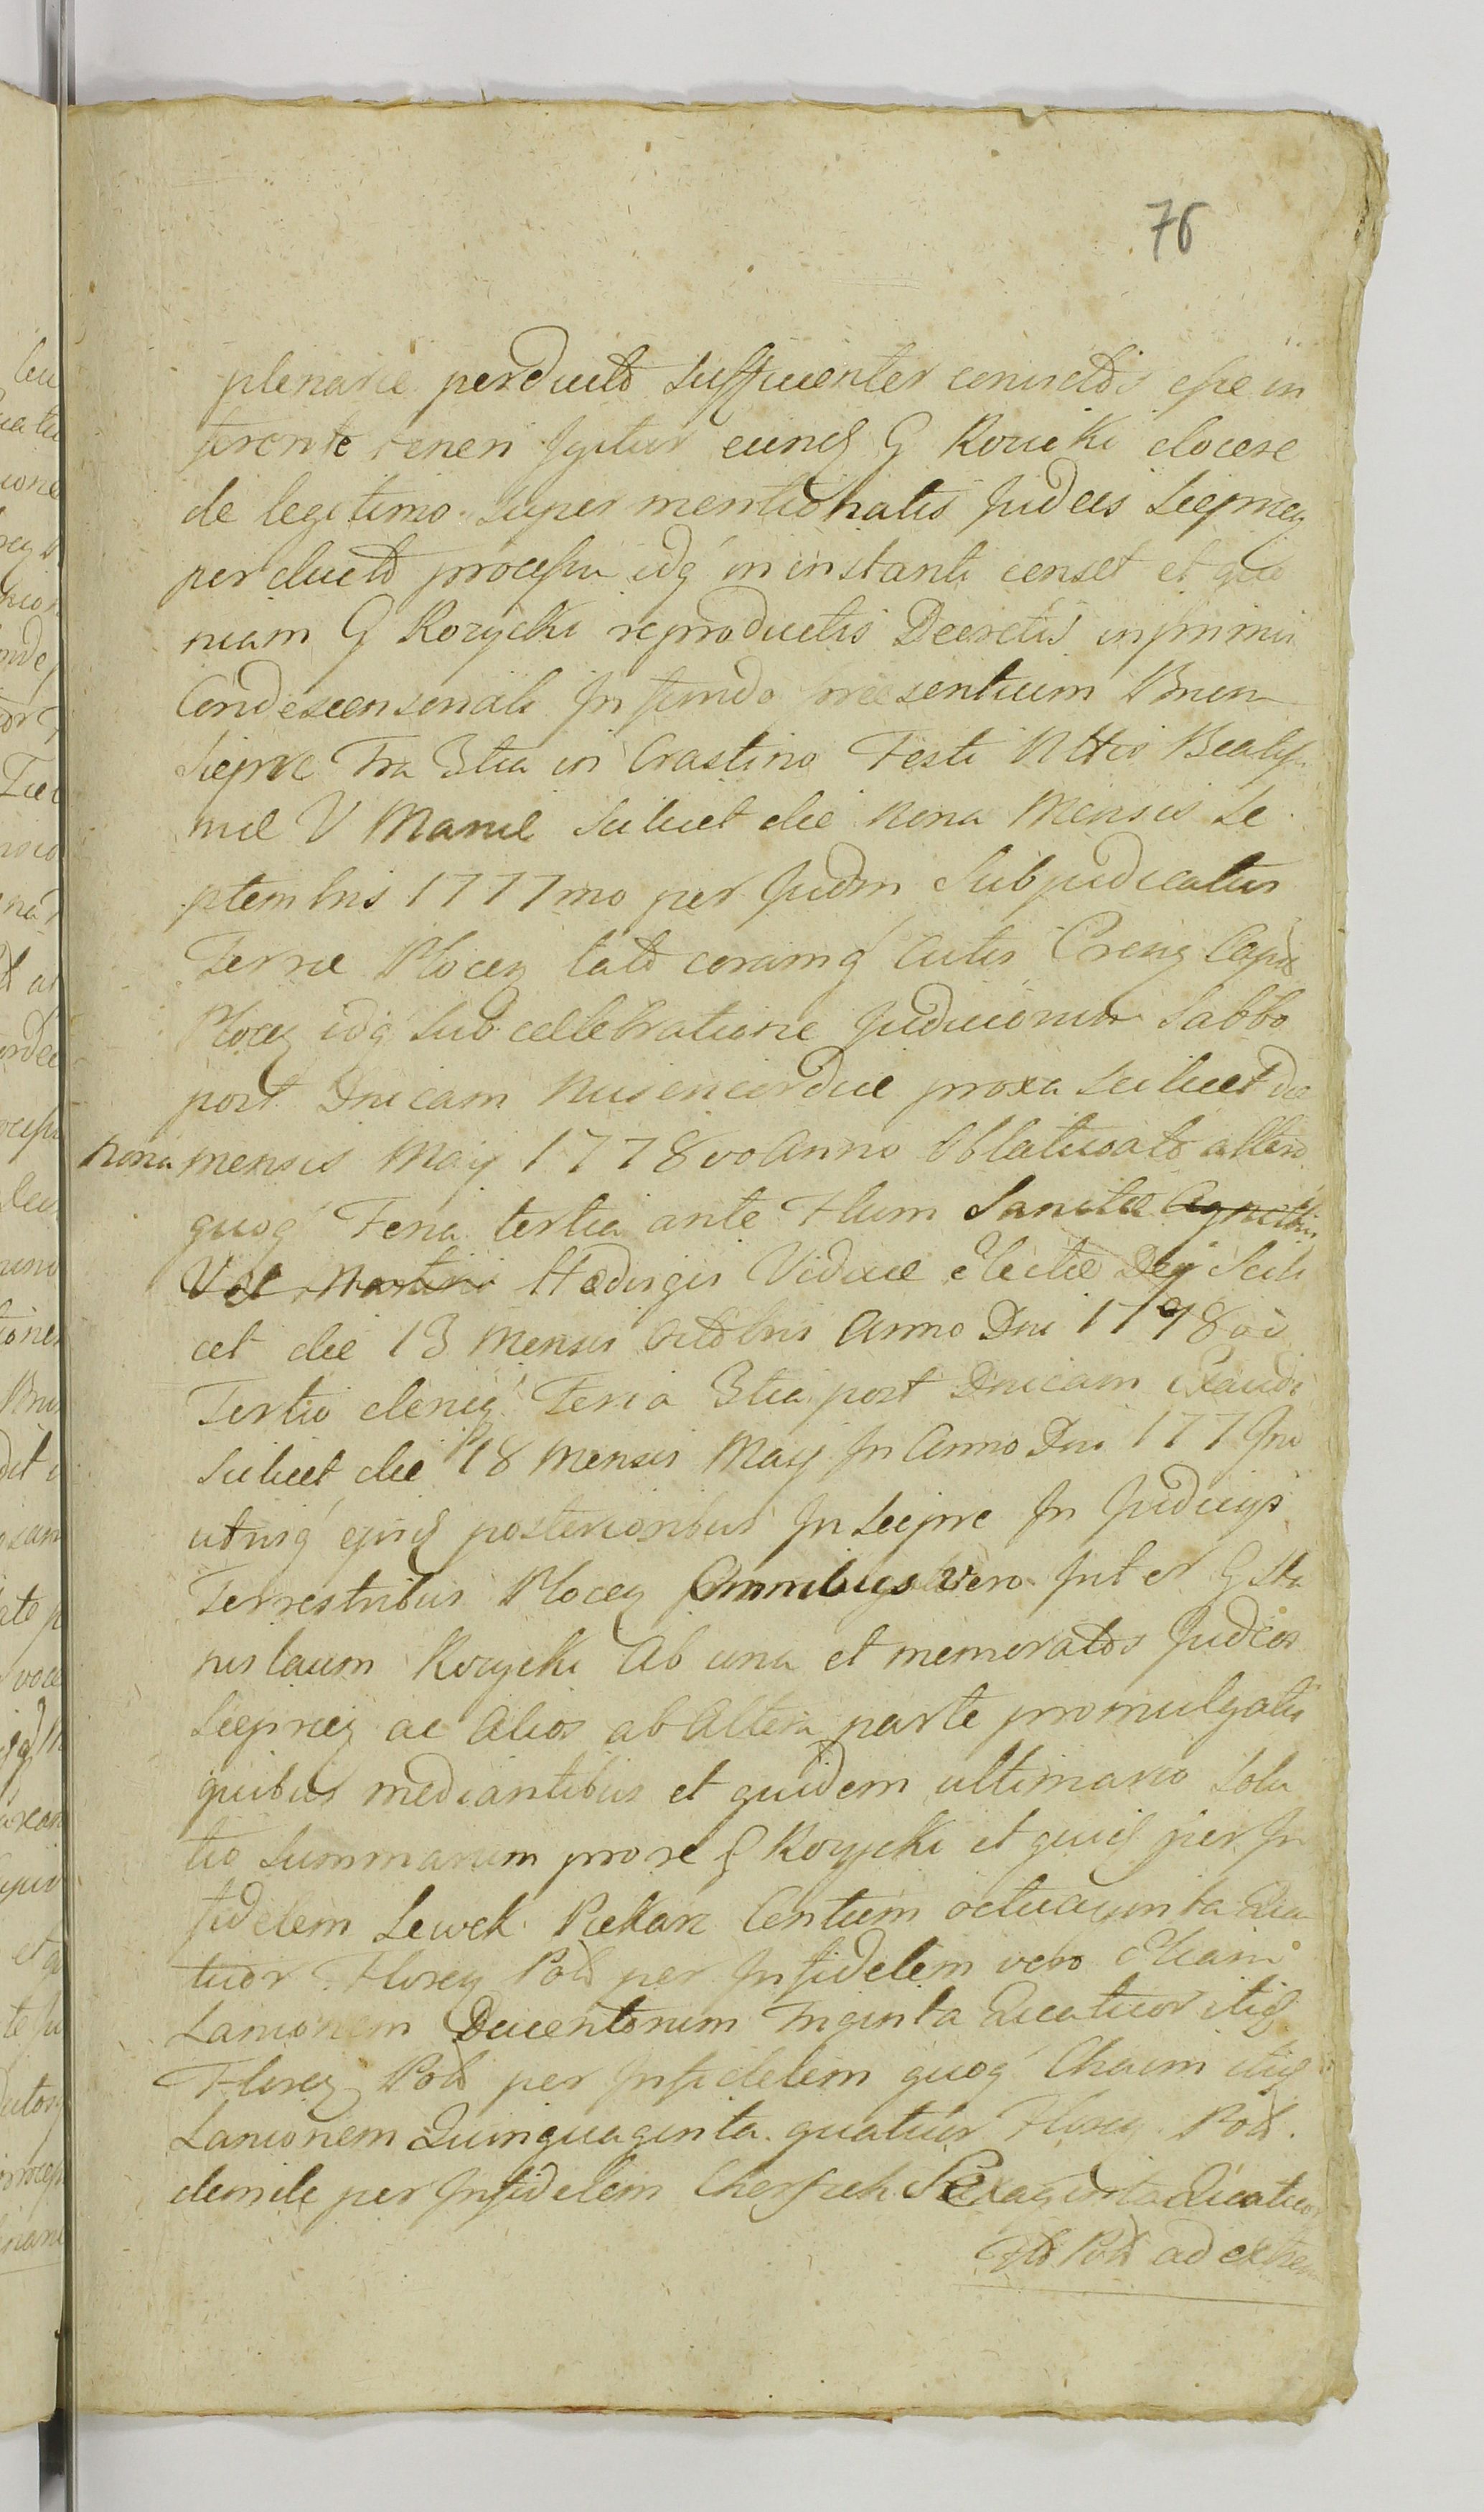 76
plenarie perducto sufficienter convictos esse in
ferente teneri Igitur eund G Rocicki docere
de legitimo super mentionatis Judeis Sieprcen
perducto processu idq in instanti censet et quo
niam G Rozycki reproductis Decretis inprimis
Condescensionali In fundo praesentium Bnorum
Sieprc Fra 3tia in Crastino Festi Nttis Beatissi
mae V Mariae scilicet die nona Mensis Se
ptembris 1777mo per Judm Subjudicatus
Terrae Plocen lato coramq Actis Cren Capt
Plocen idq sub cellebratione Judiciorum Sabbo
post Dnicam Misericordiae proxa scilicet die
nona mensis Maij 1778vo Anno Oblatisato altero
quoq Feria tertia ante Flum Sanctae Agnethis
Vel Martini Hedvigis Viduae Electae Dey Scili
cet die 13 Mensis Octobris Anno Dni 1778vo
Tertio deniq Feria 3tia post Dnicam Exaudi
Scilicet die 18 Mensis Maij In Anno Dni 1779no
utrisq ejusd posterioribus In Sieprc In Judicijs
Terrestribus Plocen Omnibus vero Inter G Sta
nislaum Rozycki Ab una et memoratos Judeos
Sieprcen ac Alios ab Altera parte promulgatis
quibus mediantibus et quidem ultimario Solu
tio Summarum pro re G Rozycki et quid per In
fidelem Lewek Piekarz Centum octuaginta Qua
tuor Floren Pol per Infidelem vero Chaim
Lanionem Ducentorum Triginta Quatuor itid
Floren Pol per Infidelem quoq Chaim itid
Lanionem Quinquaginta quatuor Floren Pol.
deinde per Infidelem Herszek Sexaginta Quatuor
Flo Pol ad extrem